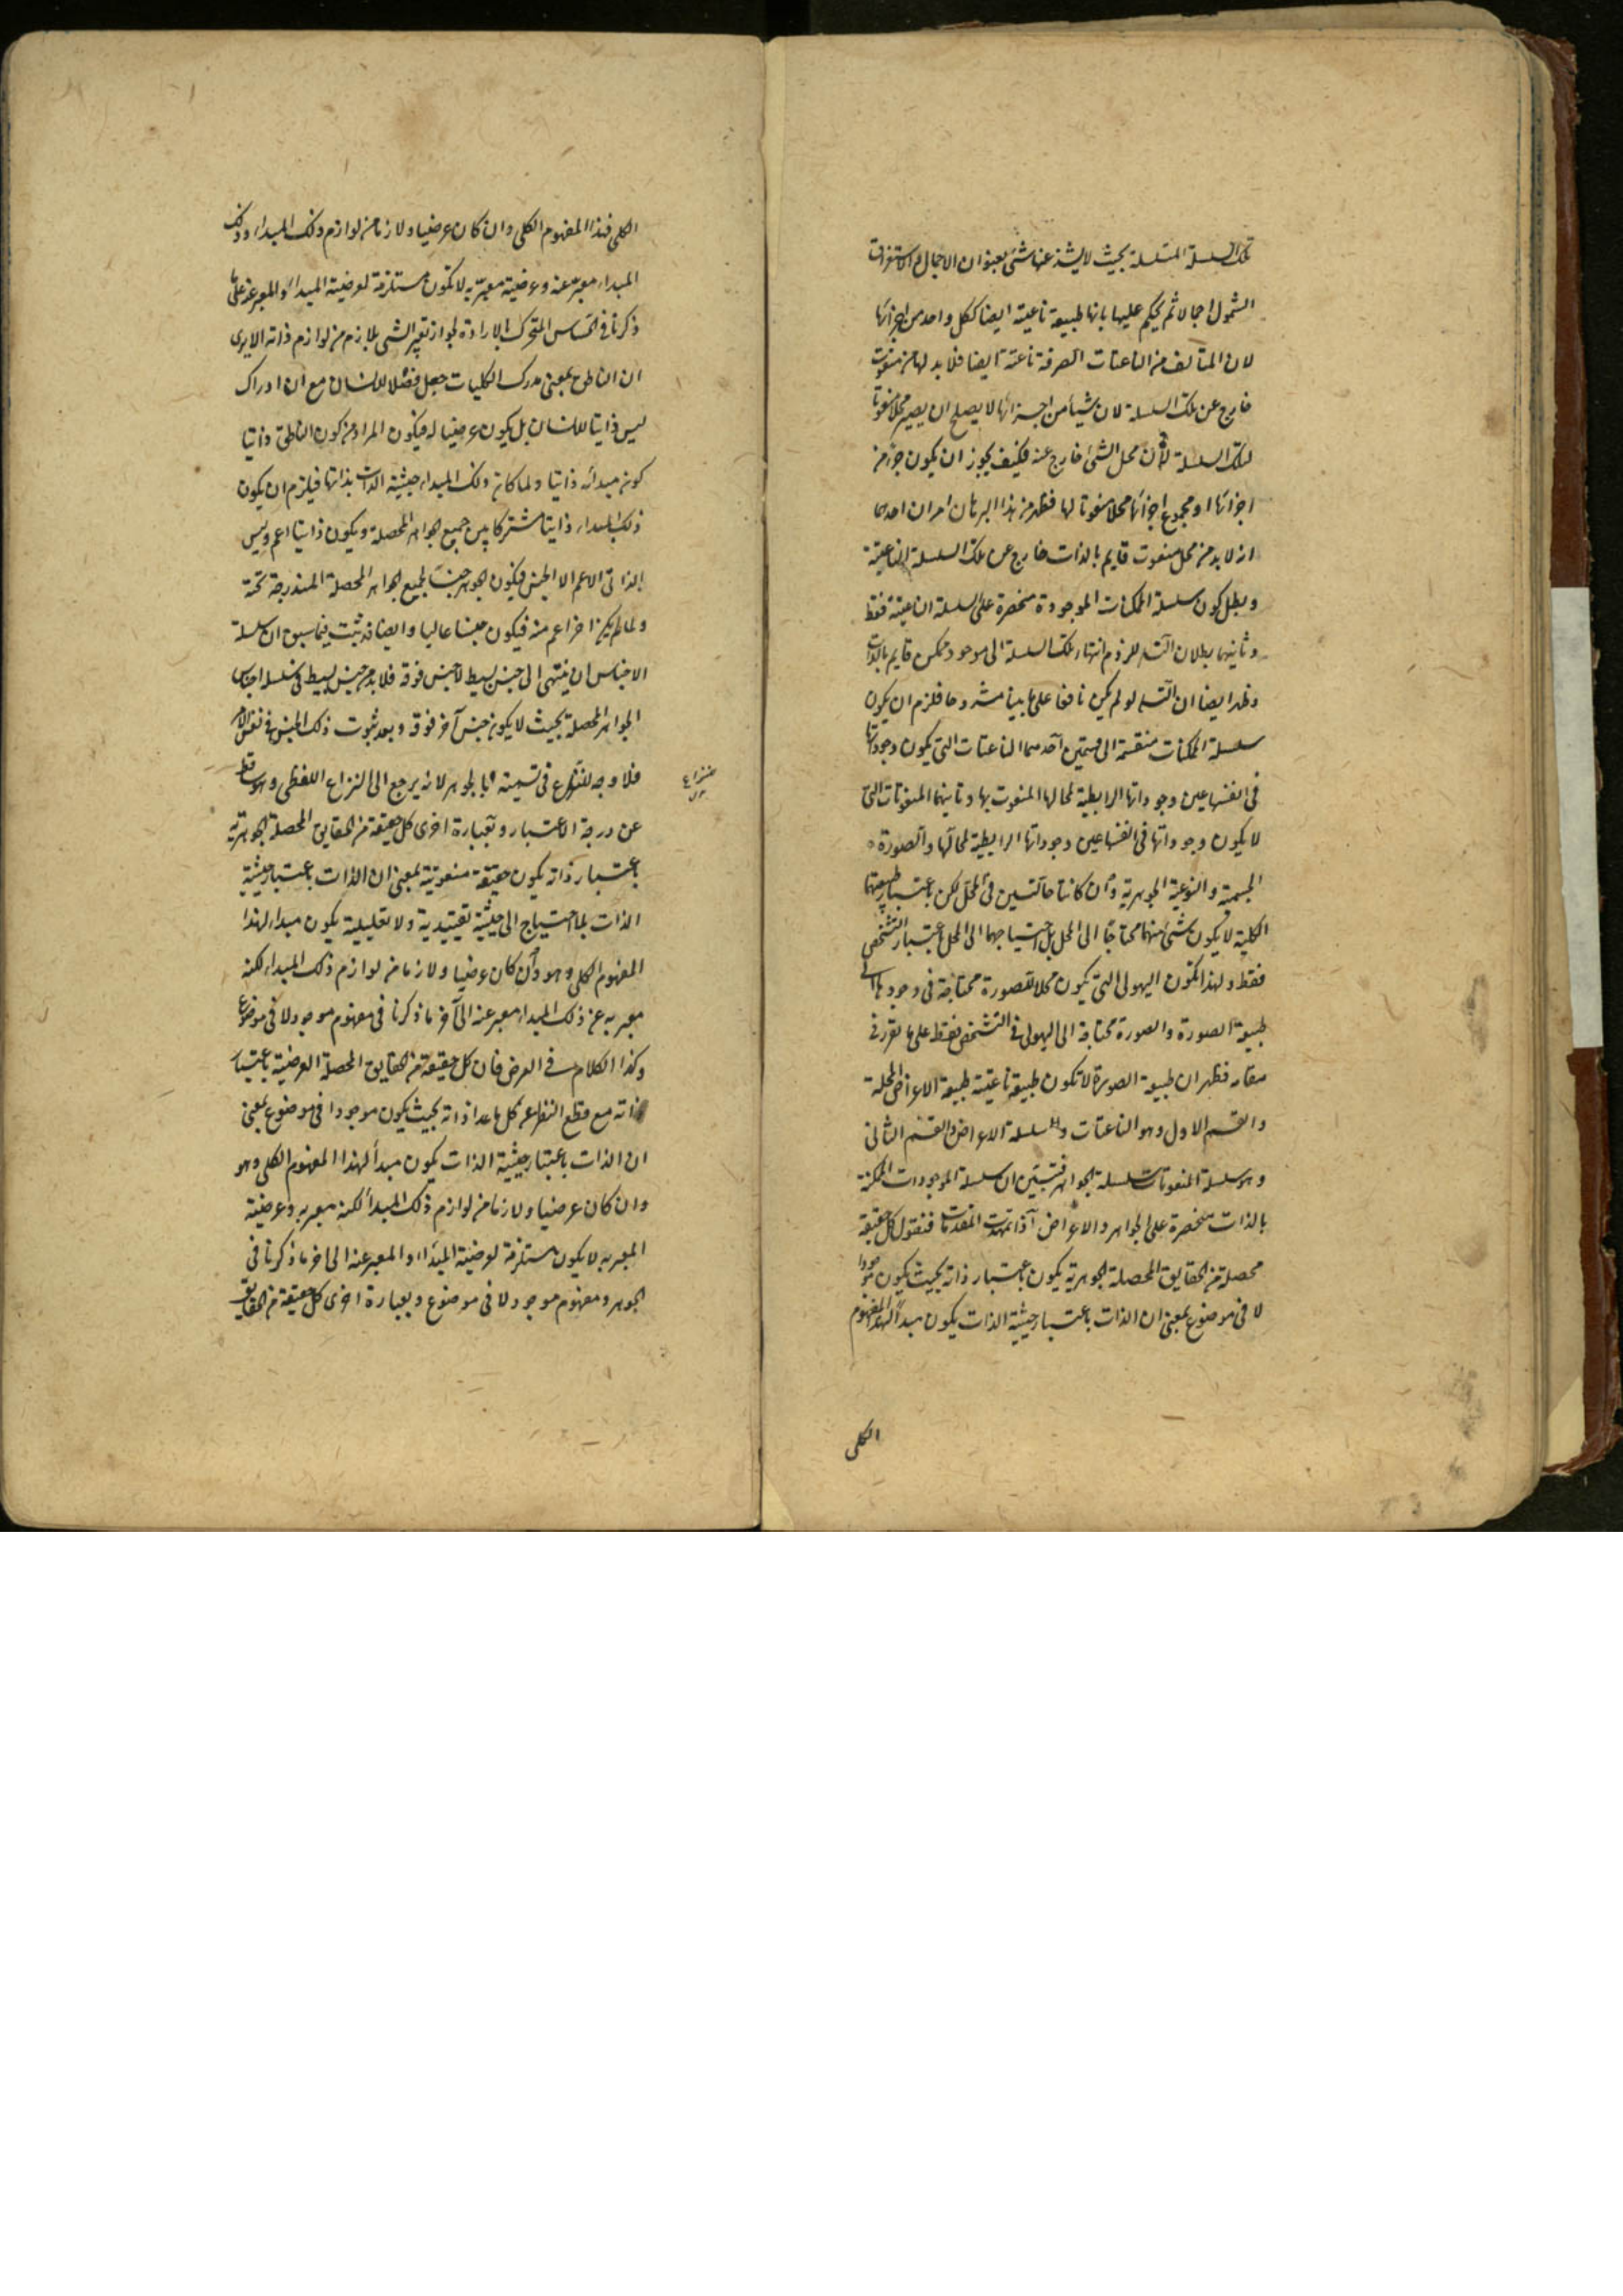 تلك السلسلة المتسلسلة بحيث لا يشذ عنها شئ بعنوان الاجمال و الاستغراق
الشمول اجمالا ثم يحكم عليها بانها طبيعة ناعتية ايضا ككل واحد من اجزائها
لان المتالف من الناعتات الصرفة ناعتة ايضا فلا بد لها من منعوت
خارج عن تلك السلسلة لان شيأ من اجزائها لا يصلح ان يصير محلا منعوتا
لتلك السلسلة لان محل الشئ خارج عنه فكيف يجوز ان يكون جزء من
اجزائها او مجموع اجزائها محلا منعوتا لها فظهر من هذا البرهان امران احدهما
انه لا بد من محل منعوت قايم بالذات خارج عن تلك السلسلة الناعتية
و بطل كون سلسلة الممكنات الموجودة منحصرة على سلسلة الناعتية فقط
و ثانيهما بطلان التسلسل للزوم انتهاء تلك السلسلة الى موجود ممكن قايم بالذات
و ظهر ايضا ان التسلسل لو لم يكن نافعا على ما بيناه مشروحا فلزم ان يكون
سلسلة الممكنات منقسمة الى قسمين احدهما الناعتات التى يكون وجوداتها
فى انفسها عين وجوداتها الرابطية لمحالها المنعوت بها و ثانيهما المنعوتات التى
لا يكون وجوداتها فى انفسها عين وجوداتها الرابطية لمحالها و الصورة
الجسمية و النوعية الجوهرية و ان كانتا حالتين فى المحل لكن باعتبار طبيعتهما
الكلية لا يكون شئ منهما محتاجا الى المحل بل احتياجهما الى المحل باعتبار التشخص
فقط و لهذا تكون الهيولى التى يكون محلا للصورة محتاجة فى وجودها الى
طبيعة الصورة و الصورة محتاجة الى الهيولى فى التشخص فقط على ما تقرر فى
مقامه فظهر ان طبيعة الصورة لا تكون طبيعة ناعتية طبيعة الاعراض المحلة
و القسم الاول و هو الناعتات سلسلة الاعراض و القسم الثانى
و هو سلسلة المنعوتات سلسلة الجواهر فتبين ان سلسلة الموجودات الممكنة
بالذات منحصرة على الجواهر و الاعراض اذا تمهدت المقدمات فنقول كل حقيقة
محصلة من الحقايق المحصلة الجوهرية يكون باعتبار ذاته بحيث يكون موجودا
لا فى موضوع بمعنى ان الذات باعتبار حيثية الذات يكون مبدأ لهذا المفهوم
الكلى
الكلى فهذا المفهوم الكلى و ان كان عرضيا و لازما من لوازم ذلك المبداء و ذلك
المبداء معبر عنه و عرضية معبر به لا تكون مستلزمة لعرضية المبداء و المعبر عنه على ما
ذكرنا فى الحساس المتحرك بالارادة لجواز تعبير الشى بلازم من لوازم ذاته الا يرى
ان الناطق بمعنى مدرك الكليات جعل فصلا للانسان مع ان ادراك
ليس ذاتيا للانسان بل يكون عرضيا له فيكون المراد من كون الناطق ذاتيا
كون مبدائه ذاتيا و لما كان ذلك المبداء حيثية الذات بذاتها فيلزم ان يكون
ذلك المبداء ذاتيا مشتركا بين جميع الجواهر المحصلة و يكون ذاتيا اعم و ليس
الذاتى الاعم الا الجنس فيكون الجوهر جنسا لجميع الجواهر المحصلة المندرجة تحته
و لما لم يكن اخر اعم منه فيكون جنسا عاليا و ايضا قد ثبت فيما سبق ان سلسلة
الاجناس ان ينتهى الى جنس بسيط لا جنس فوقه فلا بد من جنس بسيط فى سلسلة اجناس
الجواهر المحصلة بحيث لا يكون جنس آخر فوقه و بعد ثبوت ذلك الجنس فى نفس الامر
فلا وجه للنزاع فى تسميته بالجوهر لانه يرجع الى النزاع اللفظى و هو ساقط
عن درجة الاعتبار و بعبارة اخرى كل حقيقة من الحقايق المحصلة الجوهرية
باعتبار ذاته يكون حقيقة منعوتية بمعنى ان الذات باعتبار حيثية
الذات بلا احتياج الى حيثية تقييدية و لا تعليلية يكون مبداء لهذا
المفهوم الكلى و هو و ان كان عرضيا و لازما من لوازم ذلك المبداء لكنه
معبر به عن ذلك المبداء معبر عنه الى آخر ما ذكرنا فى مفهوم موجود لا فى موضوع
و كذا الكلام فى العرض فان كل حقيقة من الحقايق المحصلة العرضية باعتبار
ذاته مع قطع النظر عن كل ما عدا ذاته بحيث يكون موجودا فى موضوع بمعنى
ان الذات باعتبار حيثية الذات يكون مبدأ لهذا المفهوم الكلى و هو
و ان كان عرضيا و لازما من لوازم ذلك المبدأ لكنه معبر به و عرضية
المعبر به لا يكون مستلزمة لعرضية المبدأ و المعبر عنه الى اخر ما ذكرنا فى
الجوهر و مفهوم موجود لا فى موضوع و بعبارة اخرى كل حقيقة من الحقايق